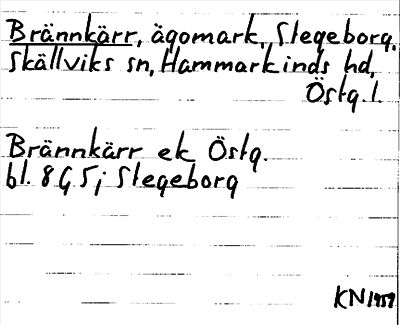 Brännkärr, ägomark, Stegeborg,
Skällviks sn, Hammarkinds hd,
Östg.l.
Brännkärr ek Östg.
bl. 8G5j Stegeborg
KN 1959